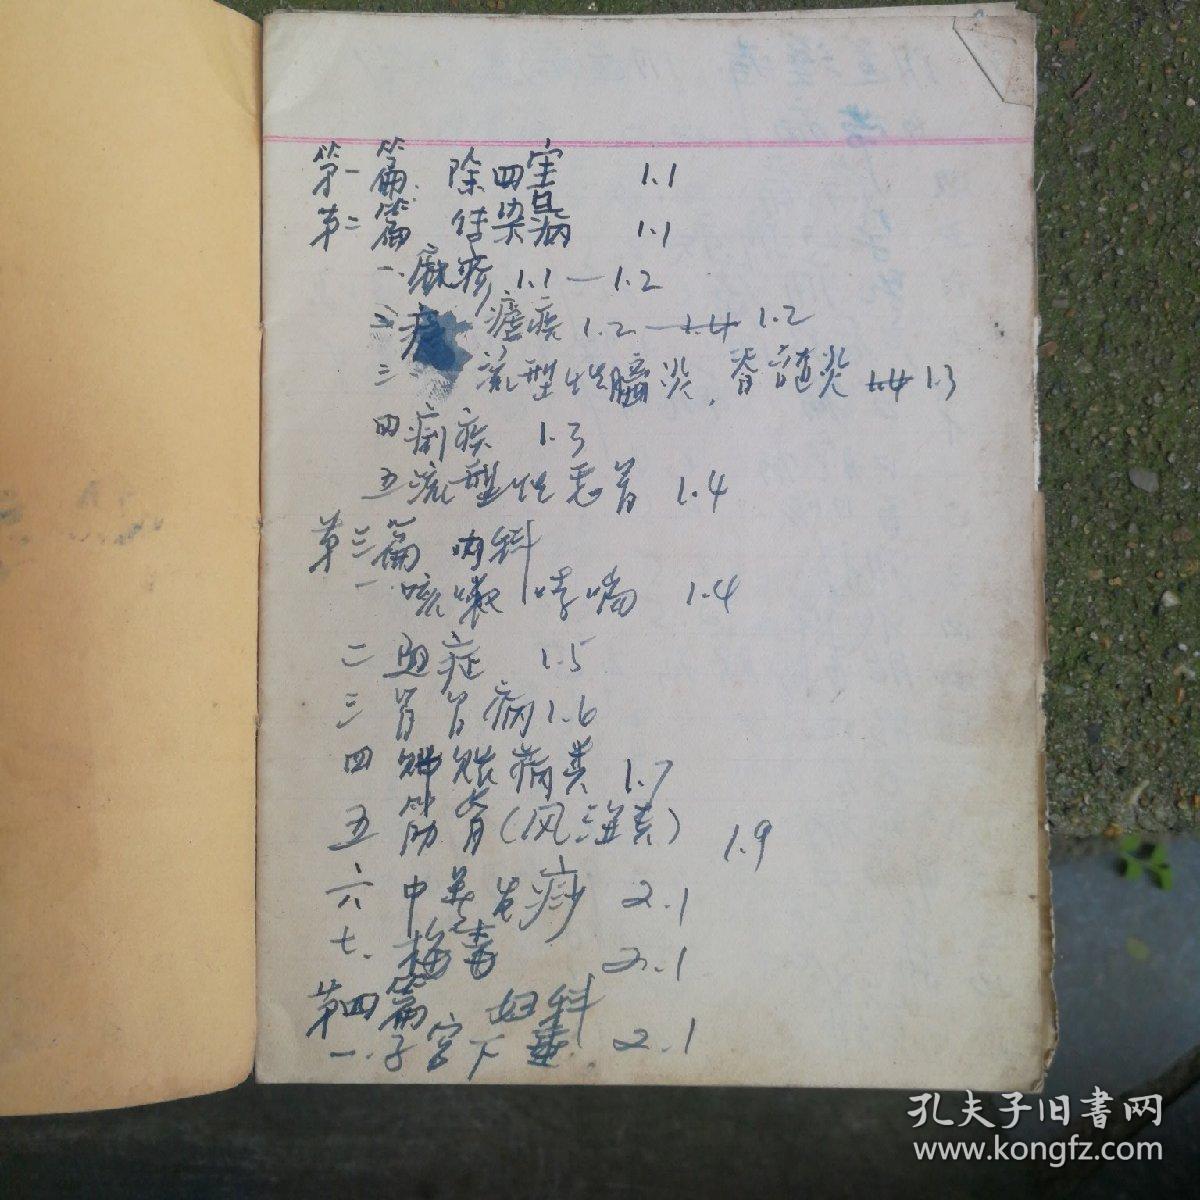 第一篇 除四害 1.1
第二篇 传染病 1.1
一.麻疹 1.1—1.2
二 疟疾 1.2 — 1.4 1.2
三 流型性脑炎、脊髓炎 1.4 1.3
四 痢疾 1.3
五 流型性感冒 1.4
第三篇 内科
一 咳嗽 哮喘 1.4
二 血症 1.5
三 胃 病 1.6
四 病类 1.7
五 筋骨(风湿类) 1.9
六 中暑发痧 2.1
七、梅毒 2.1
第四篇 妇科
一.子宫下垂 2.1
孔夫子旧書网
www.kongfz.com